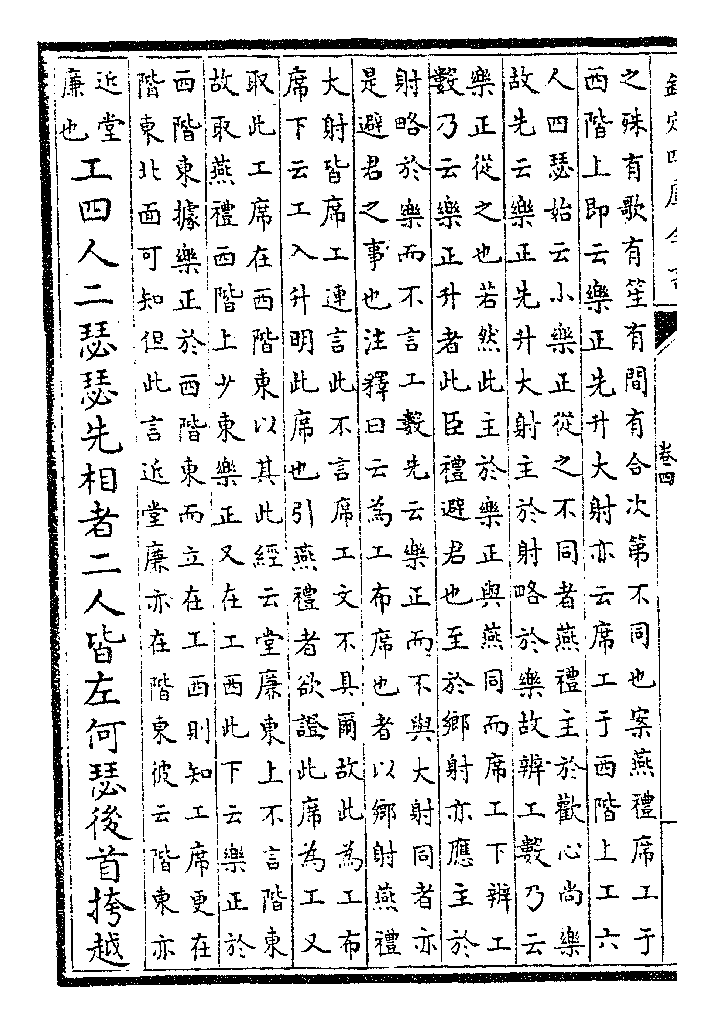 欽定四庫全書
卷四
之殊有歌有笙有間有合次第不同也案燕禮席工于
西階上即云樂正先升大射亦云席工于西階上工六
人四瑟始云小樂正從之不同者燕禮主於歡心尚樂
故先云樂正先升大射主於射略於樂故辨工數乃云
樂正從之也若然此主於樂正與燕同而席工下辨工
數乃云樂正升者此臣禮避君也至於鄉射亦應主於
射略於樂而不言工數先云樂正而不與大射同者亦
是避君之事也注釋曰云為工布席也者以鄉射燕禮
大射皆席工連言此不言席工文不具爾故此為工布
席下云工入升明此席也引燕禮者欲證此席為工又
取此工席在西階東以其此經云堂廉東上不言階東
故取燕禮西階上少東樂正又在工西此下云樂正於
西階東據樂正於西階東而立在工西則知工席更在
階東北面可知但此言近堂廉亦在階東彼云階東亦
近堂
廉也
工四人二瑟瑟先相者二人皆左何瑟後首挎越